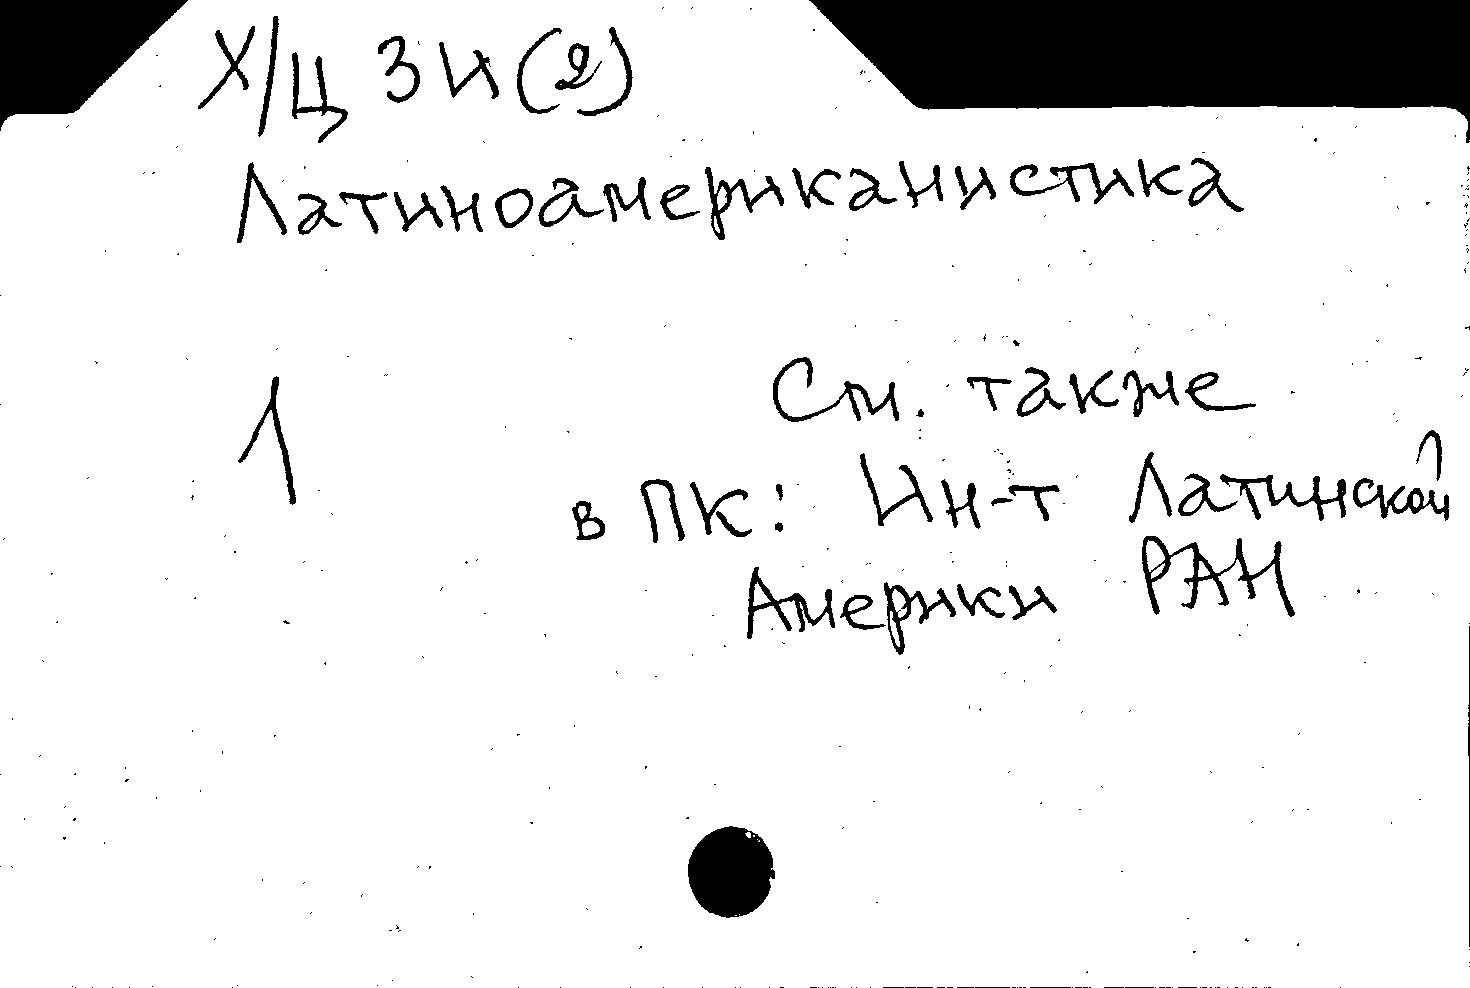 Х/Ц 3 И(2)
Латиноамериканистика
1
См. также
в ПК: Ин-т Латинской
Америки РАН